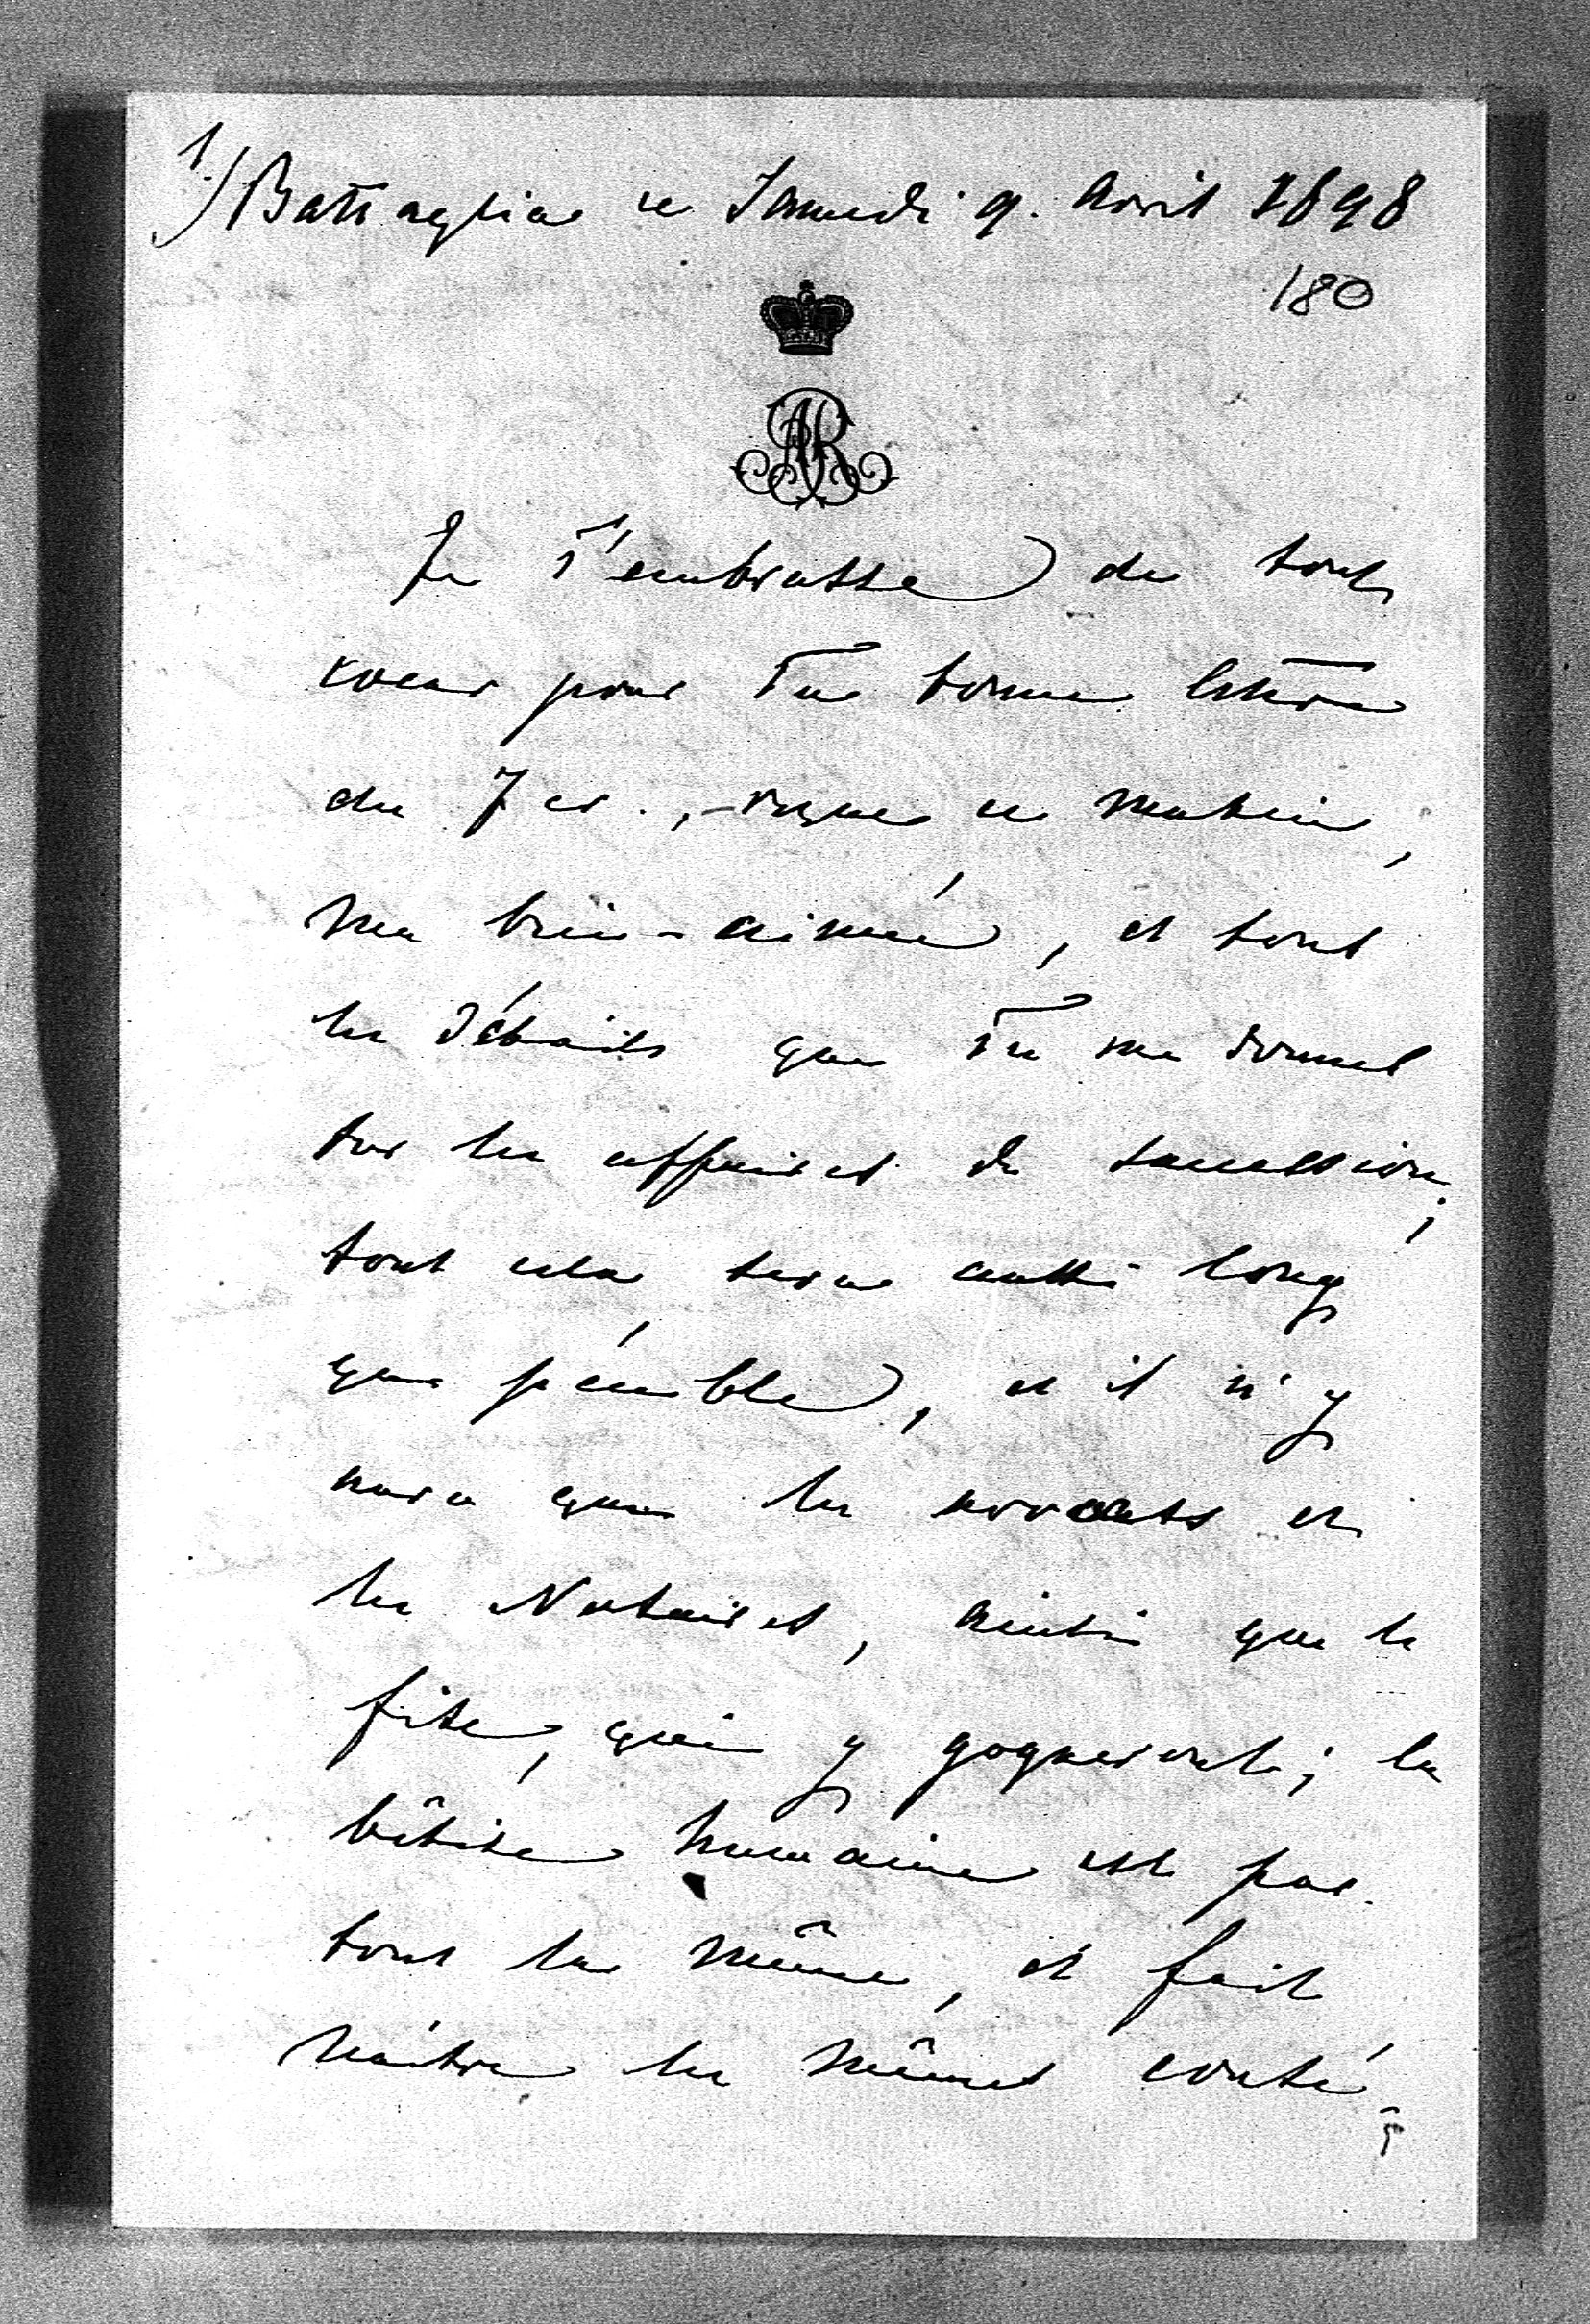 1./ Battaglia ce Samedi 9. Avril 1898
180
AR
Je T'embrasse de tout
coeur pour Ta bonne lettre
du 7 cr., reçue ce matin,
ma bien-aimée, et tout
les détails que Tu me donnes
sur les affaires de succession;
tout cela sera aussi long
que pénible, et il n'y
aura que les avocats et
les Notaires, ainsi que le
fisc, qui y gagneront; la
bêtise humaine est par-
tout la même, et fait
naître les mêmes